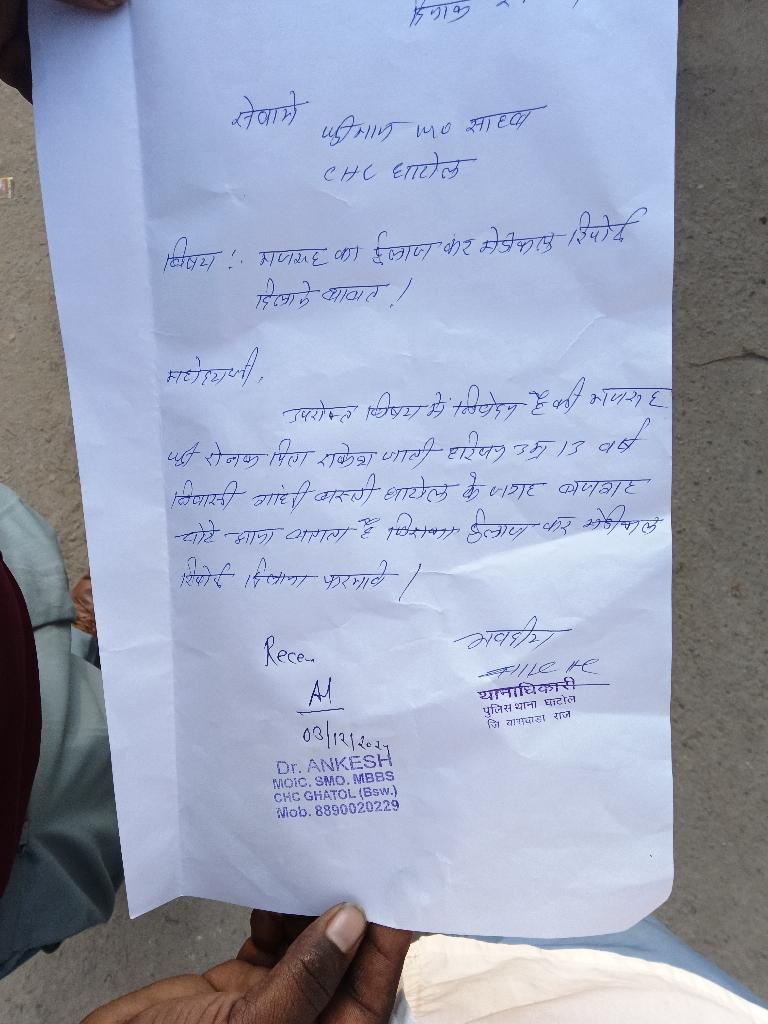 दिनांक
सेवामे
श्रीमान MO साहब
CHC घाटोल
विषय :- मजरुह का ईलाज कर मेडीकल रिपोर्ट
दिलाने बाबत !
महोदयजी,
उपरोक्त विषय में निवेदन है की मजरुह
श्री रोनक पिता राकेश जाती हरिजन उम्र 13 वर्ष
निवासी गांधी बस्ती घाटोल के जगह बजगह
चोटे आना बताता है जिसका ईलाज कर मेडीकल
रिपोर्ट दिलाना फरमावे !
भवदीय
Rece
थानाधिकारी
पुलिस थाना घाटोल
जि बांसवाडा राज
03/12/2024
Dr. ANKESH
MOIC, SMO. MBBS
CHC GHATOL (Bsw.)
Mob. 8890020229